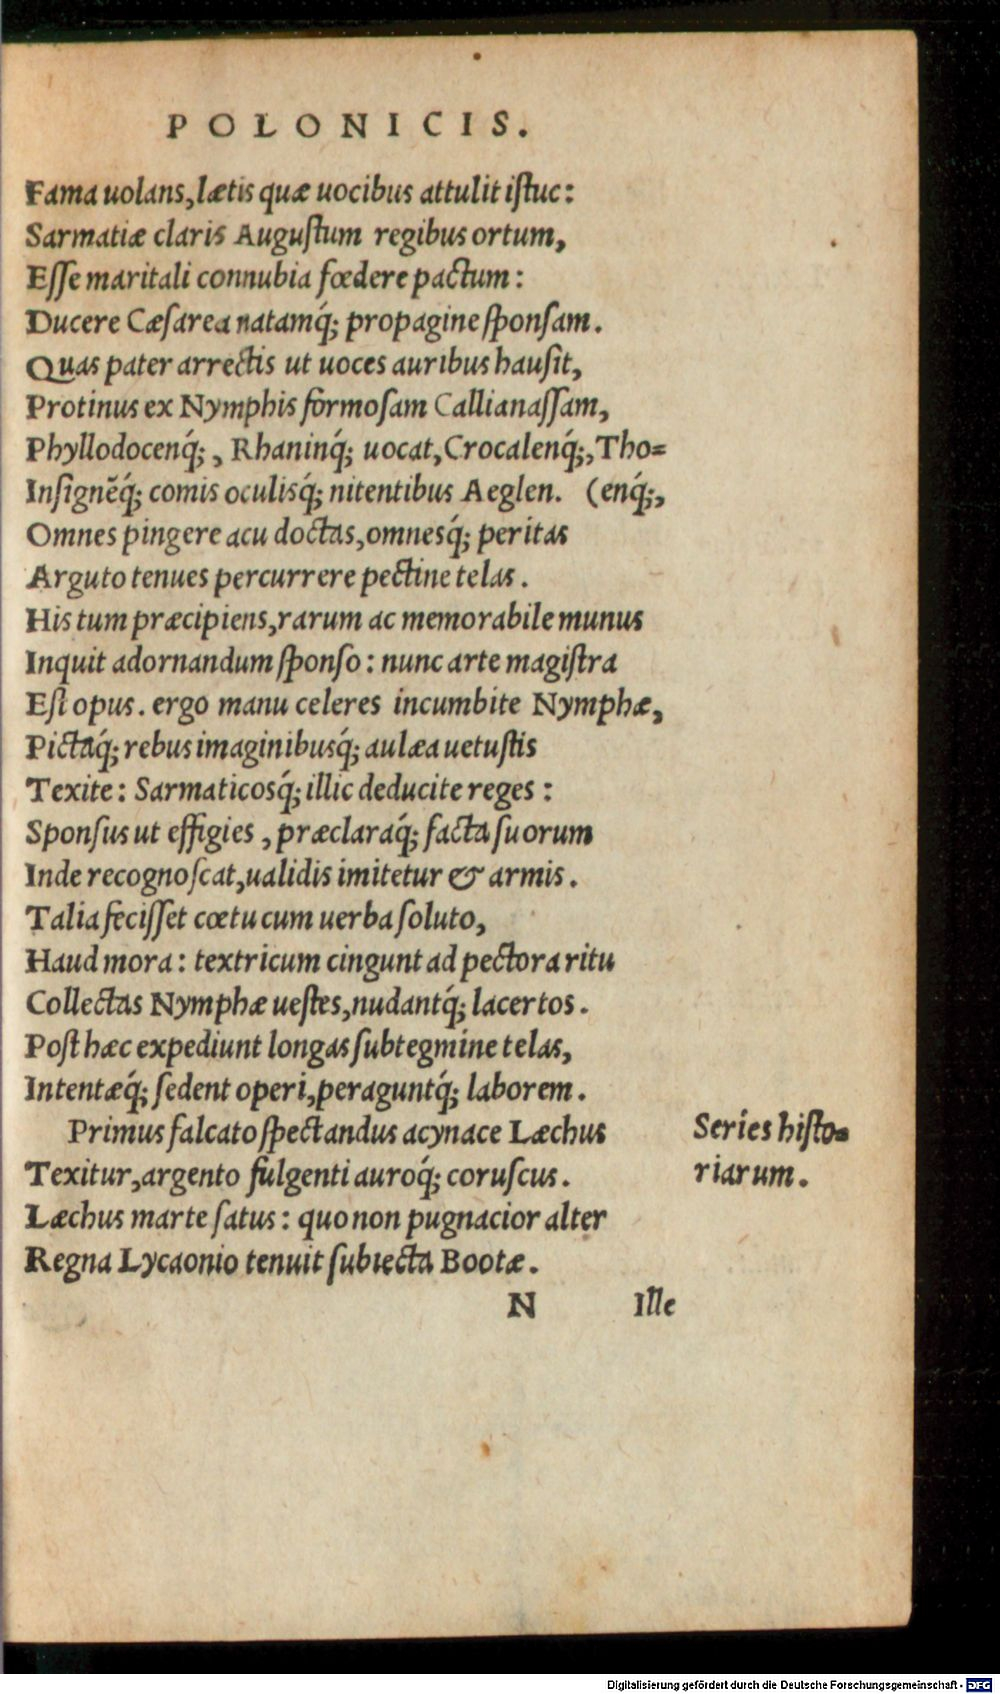 POLONICIS.
Fama uolans, lætis quæ uocibus attulit iſtuc:
Sarmatiæ claris Auguſtum regibus ortum,
Eſſe maritali connubia fœdere pactum:
Ducere Cæſarea natamq́; propagine ſponſam.
Quas pater arrectis ut uoces auribus hauſit,
Protinus ex Nymphis formoſam Callianaſſam,
Phyllodocenq́;, Rhaninq́; uocat, Crocalenq́;, Tho=
Inſignẽq́; comis oculisq́; nitentibus Aeglen. (enq́;,
Omnes pingere acu doctas, omnesq́; peritas
Arguto tenues percurrere pectine telas.
His tum præcipiens, rarum ac memorabile munus
Inquit adornandum ſponſo: nunc arte magiſtra
Eſt opus. ergo manu celeres incumbite Nymphæ,
Pictaq́; rebus imaginibusq́; aulæa uetuſtis
Texite: Sarmaticosq́; illic deducite reges:
Sponſus ut effigies, præclaraq́; facta ſuorum
Inde recognoſcat, ualidis imitetur & armis.
Talia feciſſet cœtu cum uerba ſoluto,
Haud mora: textricum cingunt ad pectora ritu
Collectas Nymphæ ueſtes, nudantq́; lacertos.
Poſt hæc expediunt longas ſubtegmine telas,
Intentæq́; ſedent operi, peraguntq́; laborem.
Primus falcato ſpectandus acynace Læchus
Texitur, argento fulgenti auroq́; coruſcus.
Læchus marte ſatus: quo non pugnacior alter
Regna Lycaonio tenuit ſubiecta Bootæ.
Series hiſto=
riarum.
N Ille
Digitalisierung gefördert durch die Deutsche Forschungsgemeinschaft - DFG